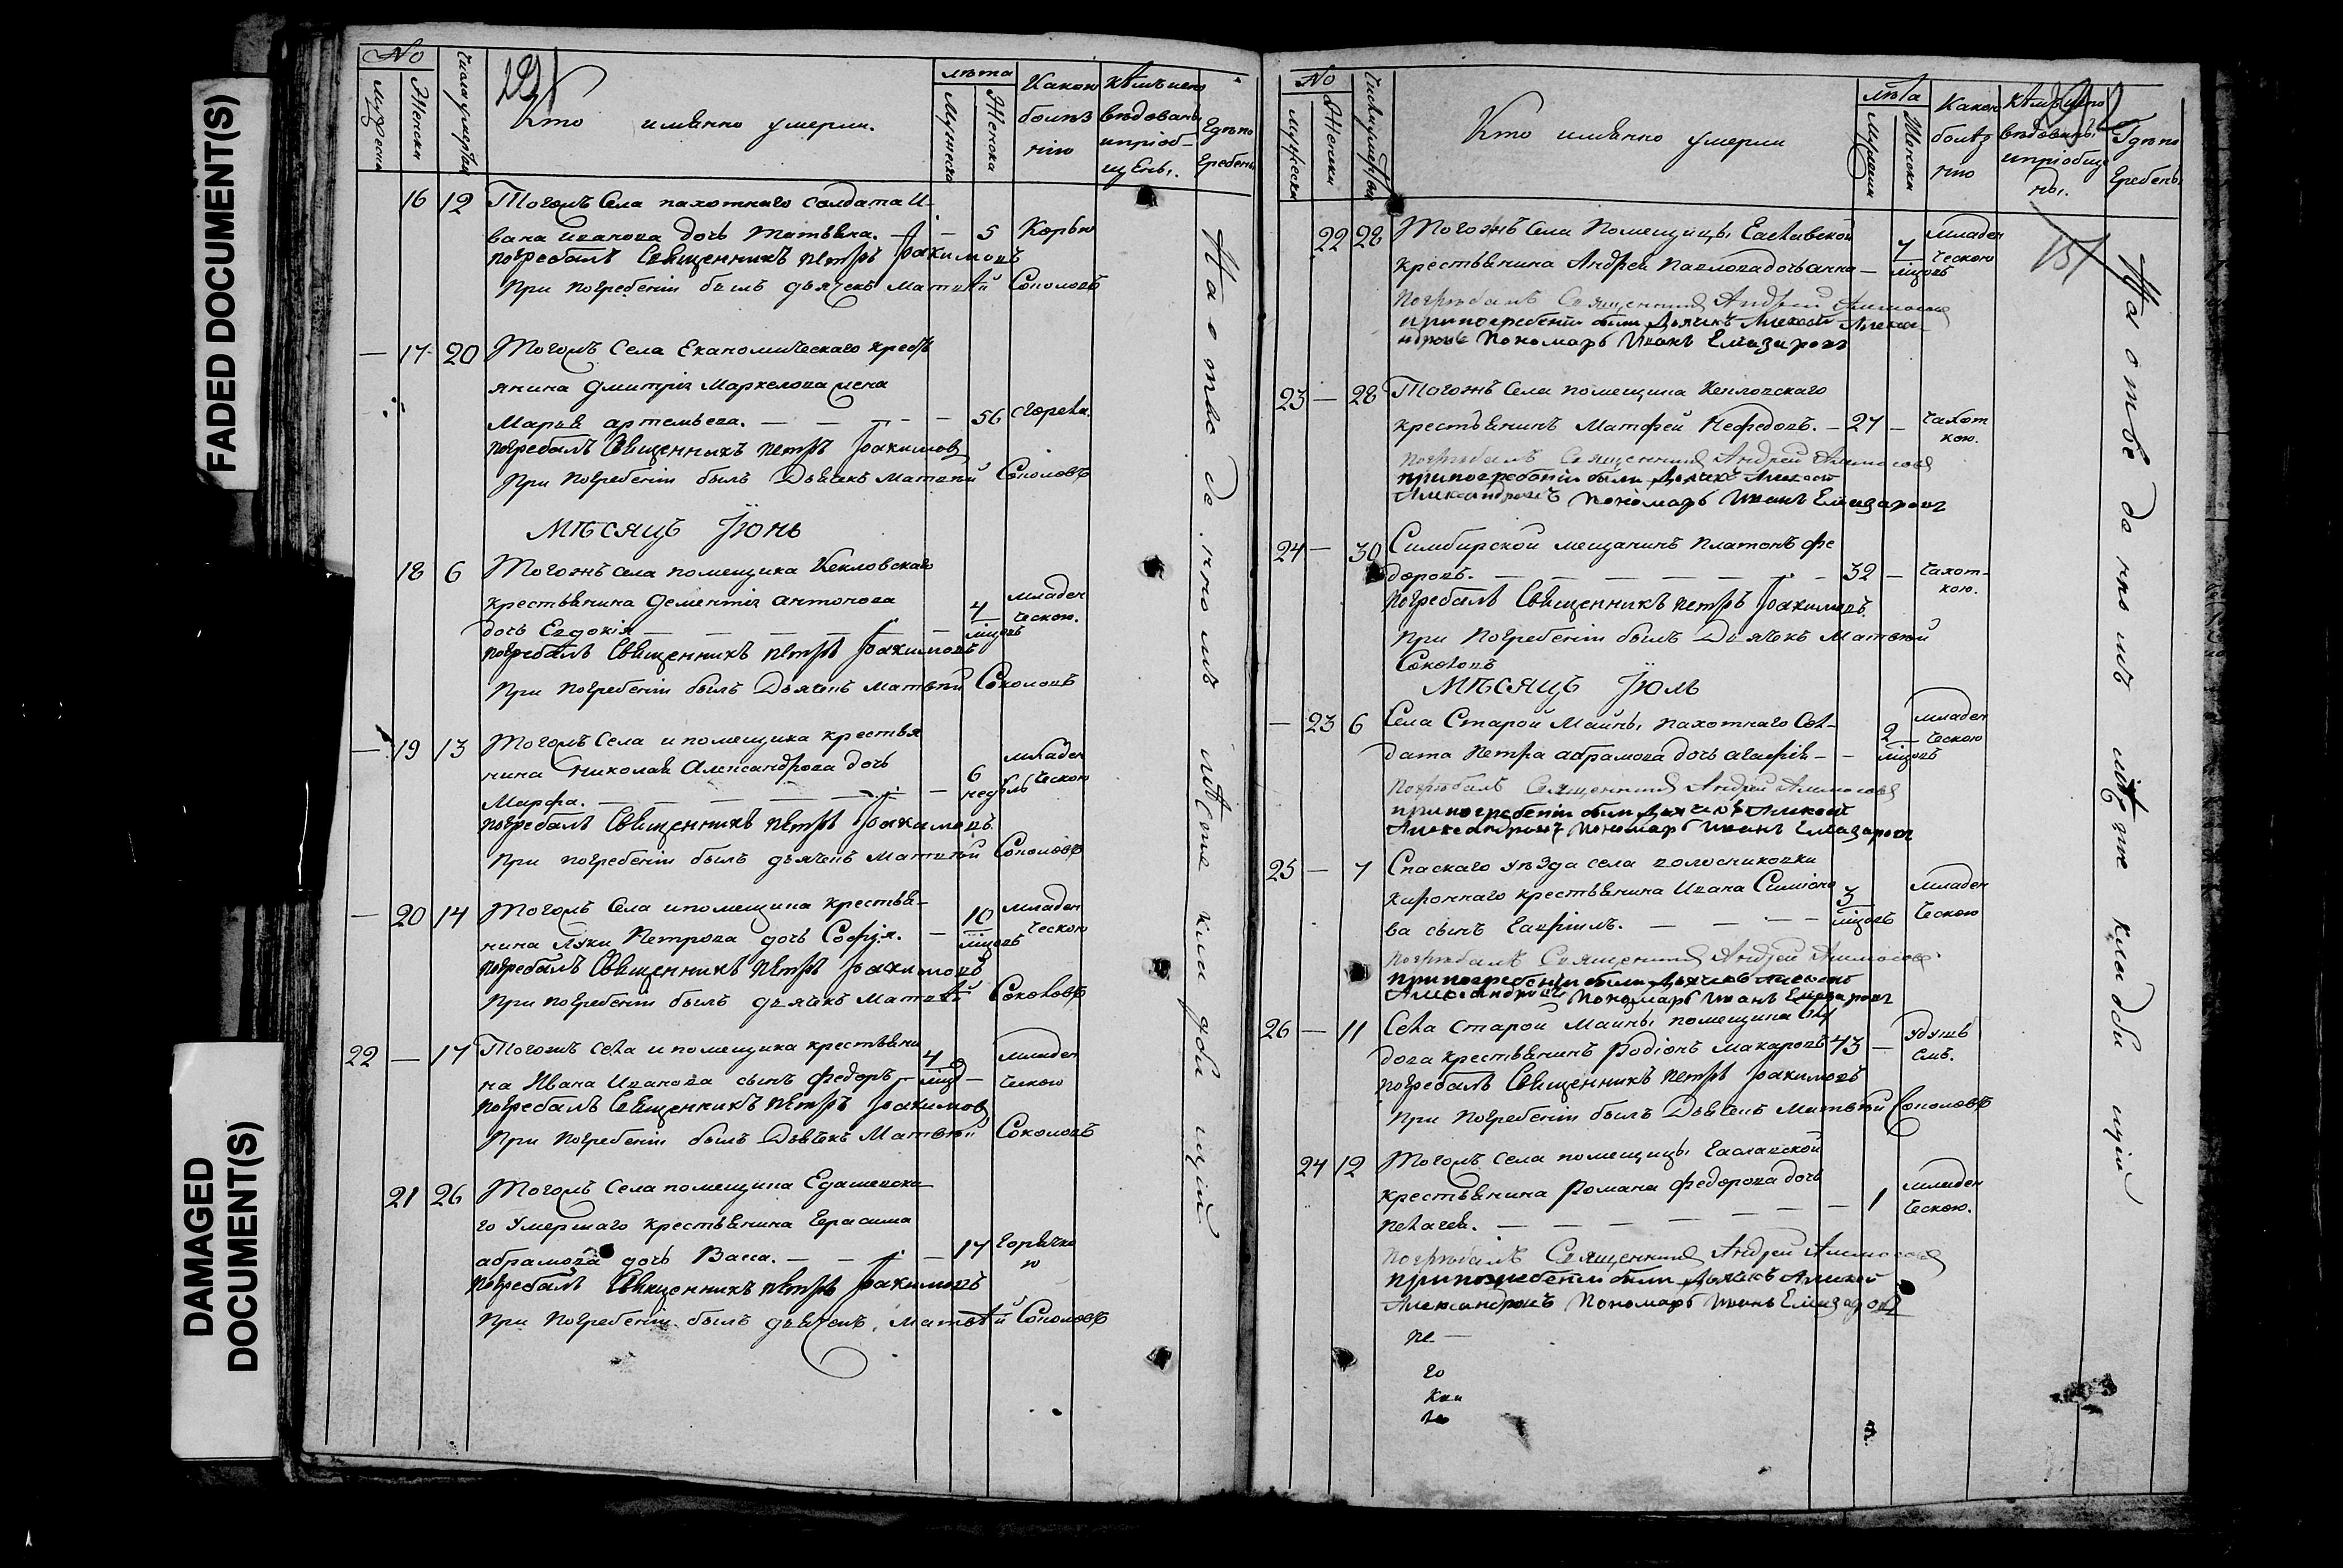 FADED DOCUMENT(S)
DAMAGED DOCUMENT(S)
№
Мужеска
Женска
Числа умертвия
Кто имянно умерли.
лѣта
Мужеска
Женска
Какою болѣзнию
кѣмъ исповѣдованы и приобщены.
Гдѣ погребены
16 12 Тогожъ Села пахотнаго солдата И-
вана Иванова дочь Татьяна. — — 5 Корью
погребалъ Священникъ петръ Іоакимовъ
При погребеніи былъ дьячекъ Матвѣй Соколовъ
— 17 20 Тогожъ Села Економическаго кресть
янина Дмитрія Маркелова жена
Марья артемьева. — — — — 56 сгорела.
погребалъ Священникъ петръ Іоакимовъ
При погребеніи былъ Дьячекъ Матвѣй Соколовъ
Мѣсяцъ Іюнь
18 6 Тогожъ села помещика Кекловскаго
крестьянина Дементія антонова
дочь Евдокія — — — — — — 4 мцовъ младенческою.
погребалъ Священникъ петръ Іоакимовъ
При погребеніи былъ Дьячекъ Матвѣй Соколовъ
— 19 13 Тогожъ Села и помещика крестья
нина Николая Александрова дочь
Марфа. — — — — — — 6 недѣль младенческою
погребалъ Священникъ петръ Іоакимовъ.
При погребеніи былъ дьячекъ Матвѣй Соколовъ
— 20 14 Тогожъ Села и помещика крестья-
нина Луки Петрова дочь Софія. — 10 мцовъ младенческою
погребалъ Священникъ петръ Іоакимовъ
При погребеніи былъ дьячекъ Матвѣй Соколовъ
22 — 17 Тогожъ села и помещика крестьяни
на Ивана Иванова сынъ федоръ — 4 мцо — младенческою
погребалъ Священникъ петръ Іоакимовъ
При погребеніи былъ Дьячекъ Матвѣй Соколовъ
21 26 Тогожъ Села помещика Едашевска
го умершаго крестьянина Герасима
абрамова дочь Васса. — — — — 17 горячкою
погребалъ Священникъ петръ Іоакимовъ
При погребеніи былъ дьячекъ Матвѣй Соколовъ
На отведенномъ мѣсте кладбищѣ
№
Мужески
Женски
Кто имянно умерли
лѣта
Мужеска
Женска
Какою болѣзнию
кѣмъ исповѣдованы и приобщены.
Гдѣ погребены
22 28 Тогожъ Села Помещицы
крестьянина Андрея Павлова дочь анна — 7 мцовъ младенческою
Погребалъ Священникъ Андрей
при погребении были Дьячекъ Алексей Алекса
ндровъ Пономарь Иванъ Елизаровъ
23 — 28 Тогожъ Села помещика Кекловскаго
крестьянинъ Матфей Нефедовъ. — 27 — Чахоткою.
Погребалъ Священникъ Андрей
при погребении были Дьячекъ Алексей
Александровъ Пономарь Иванъ Елизаровъ
24 — 30 Симбирской мещанинъ Платонъ фе
доровъ. — — — — — — — 32 — Чахоткою.
погребалъ Священникъ петръ Іоакимовъ.
При Погребеніи былъ Дьячекъ Матвѣй
Соколовъ
Мѣсяцъ Іюль
— 23 6 Села Старой Майны, пахотнаго Сол-
дата Петра абрамова дочь агафія — — 2 мцовъ младенческою
Погребалъ Священникъ Андрей
при погребении были Дьячекъ Алексей
Александровъ Пономарь Иванъ Елизаровъ
25 — 7 Спаскаго уѣзда села колосниковки
крестьянина Ивана Симионо
ва сынъ Гавріилъ. — — — 3 мцовъ младенческою
Погребалъ Священникъ Андрей
при погребении были Дьячекъ Алексей
Александровъ Пономарь Иванъ Елизаровъ
26 — 11 Села Старой Майны помещика
дова крестьянинъ Родіонъ макаровъ 43 — удушьемъ.
погребалъ Священникъ петръ Іоакимовъ
При Погребеніи былъ Дьячекъ Матвѣй Соколовъ
24 12 Тогожъ Села помещицы
крестьянина Романа федорова дочь
пелагея. — — — — — — — 1 младенческою.
Погребалъ Священникъ Андрей
при погребении были Дьячекъ Алексей
Александровъ Пономарь Иванъ Елизаровъ
пе —
го